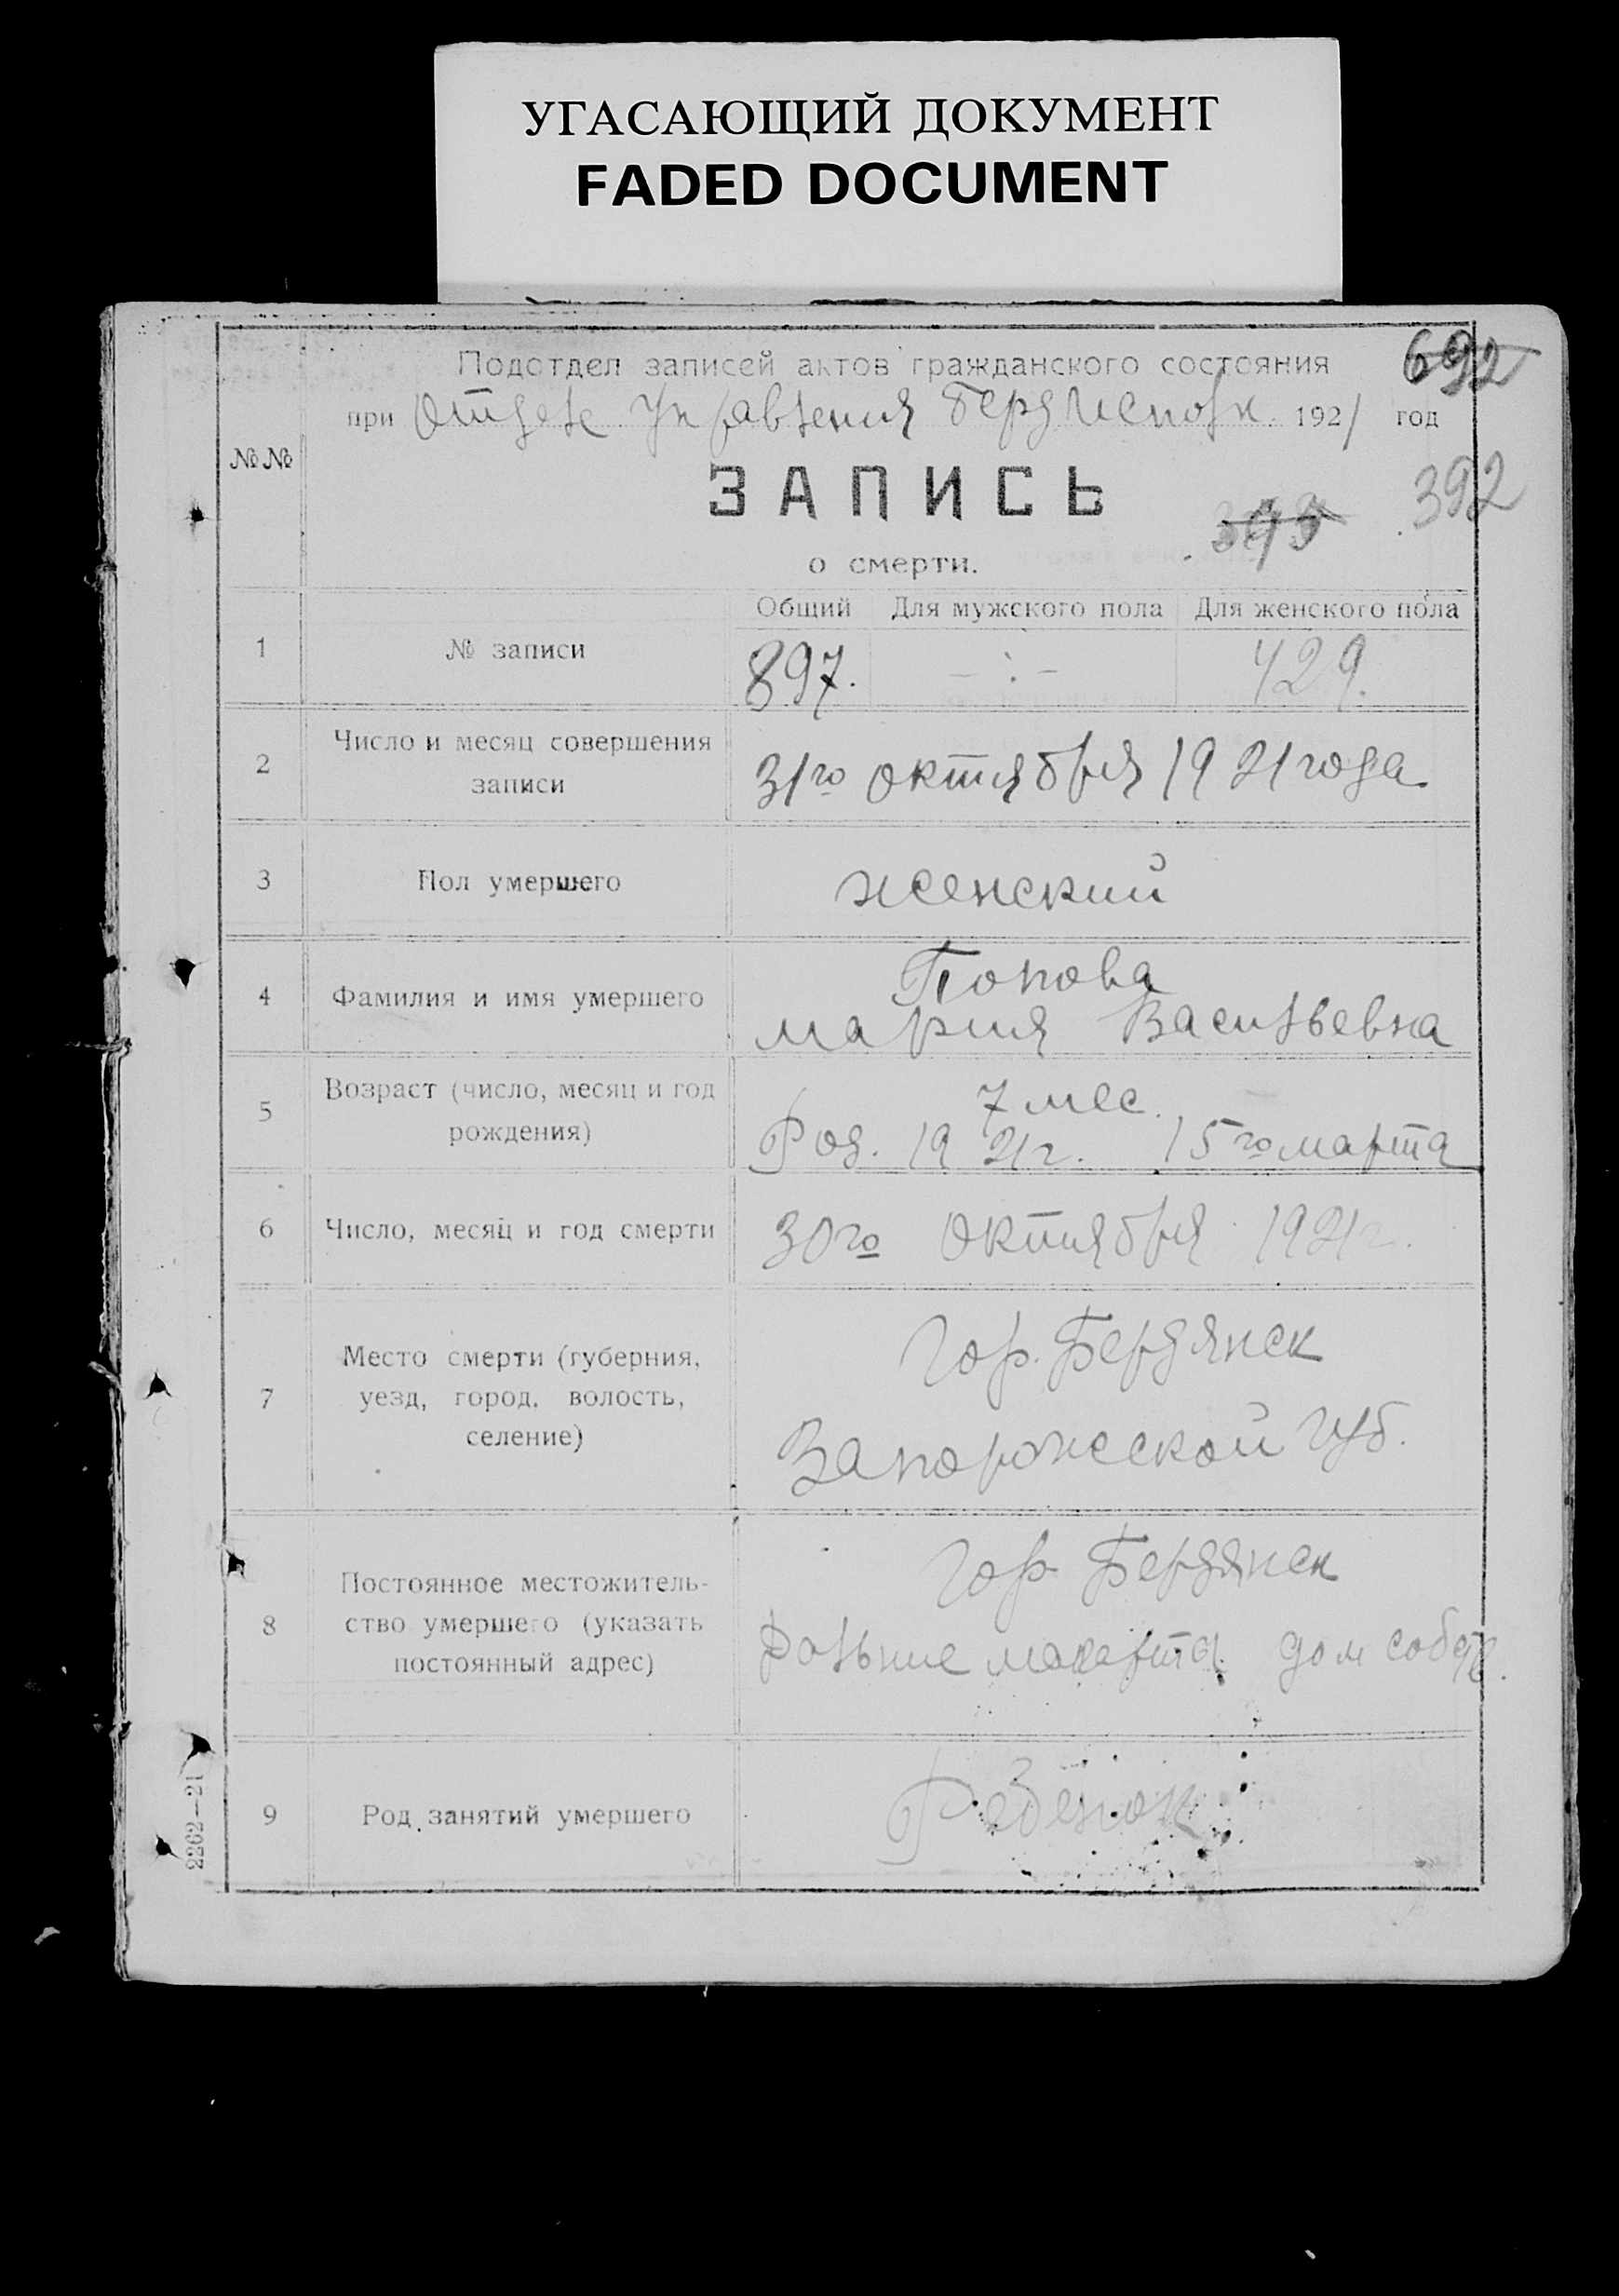 УГАСАЮЩИЙ ДОКУМЕНТ
FADED DOCUMENT
692
Подотдел записей актов гражданского состояния
при Отделе Управления Бердисполк. 1921 год
№№
ЗАПИСЬ
392
о смерти.
Общий Для мужского пола Для женского пола
1 № записи 897. – : – 429.
2 Число и месяц совершения
записи
31го октября 1921 года
3 Пол умершего женский
Попова
4 Фамилия и имя умершего
Мария Васильевна
5 Возраст (число, месяц и год
рождения)
7 мес.
Род. 1921 г. 15го марта
6 Число, месяц и год смерти 30го октября 1921 г.
7 Место смерти (губерния,
уезд, город, волость,
селение)
Гор. Бердянск
Запорожской губ.
8 Постоянное местожитель-
ство умершего (указать
постоянный адрес)
Гор Бердянск
дом собств.
9 Род занятий умершего Ребенок
2262—21